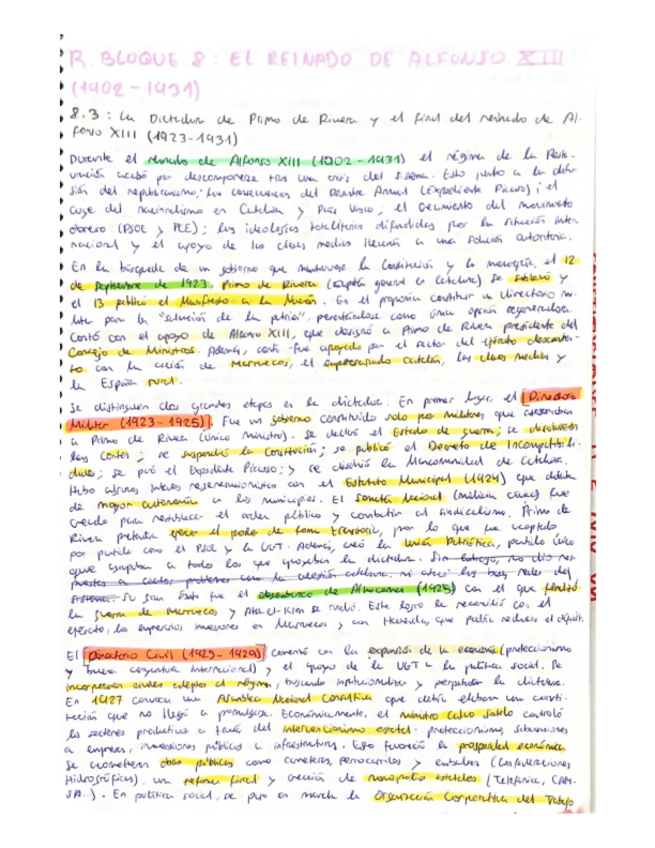 R. BLOQUE 8: EL REINADO DE ALFONSO XIII
(1902-1931)
8.3: La Dictadura de Primo de Rivera y el final del reinado de Al-
fonso XIII (1923-1931)
Durante el reinado de Alfonso XIII (1902-1931) el régimen de la Restau-
ración acabó por descomponerse tras una crisis del sistema. Esto junto a la difu-
sión del republicanismo; las consecuencias del Desastre Annual (Expediente Picasso); el
auge del nacionalismo en Cataluña y País Vasco; el crecimiento del movimiento
obrero (PSOE y PCE); las ideologías totalitarias difundidas por la situación inter
nacional y el apoyo de las clases medias llevarán a una solución autoritaria.
En la búsqueda de un gobierno que mantuviese la Constitución y la monarquía, el 12
de septiembre de 1923, Primo de Rivera (capitán general de Cataluña) se sublevó y
el 13 publicó el Manifiesto a la Nación. En él proponía constituir un directorio mi-
litar para la "salvación de la patria", presentándose como única opción regeneradora.
Contó con el apoyo de Alfonso XIII, que designó a Primo de Rivera presidente del
Consejo de Ministros. Además, fue apoyado por el sector del ejército desconten-
to con la acción de Marruecos, el empresariado catalán, las clases medias y
la España rural.
Se distinguen dos grandes etapas en la dictadura. En primer lugar, el Directorio
Militar (1923-1925). Fue un gobierno constituido solo por militares que asesoraban
a Primo de Rivera (único ministro). Se declaró el Estado de guerra; se disolvieron
las Cortes; se suspendió la Constitución; se publicó el Decreto de Incompatibili-
dades; se paró el Expediente Picasso; y se disolvió la Mancomunidad de Cataluña.
Hubo algunos intentos regeneracionistas con el Estatuto Municipal (1924) que dotaba
de mayor autonomía a los municipios. El Somatén Nacional (milicia cívica) fue
creado para restablecer el orden público y combatir al sindicalismo. Primo de
Rivera pretendía ejercer el poder de forma transitoria, por lo que fue aceptado
por partidos como el PSOE y la UGT. Además, creó la Unión Patriótica, partido único
que agrupaba a todos los que apoyaban la dictadura. Sin embargo, no dio res-
puestas a ciertos problemas como la cuestión catalana, ni atacó las bases reales del
sistema. Su gran éxito fue el desembarco de Alhucemas (1925) con el que finalizó
la guerra de Marruecos y Abd el-Krim se rindió. Este logro la reconcilió con el
ejército, los empresarios inversores en Marruecos y con Hacienda, que podía reducir el déficit.
El Directorio Civil (1925-1929) comenzó con la expansión de la economía (proteccionismo
y buena coyuntura internacional) y el apoyo de la UGT a la política social. Se
incorporaron civiles adeptos al régimen, buscando institucionalizar y perpetuar la dictadura.
En 1927 convocó una Asamblea Nacional Consultiva que debía elaborar una consti-
tución que no llegó a promulgarse. Económicamente, el ministro Calvo Sotelo controló
los sectores productivos a través del intervencionismo estatal: proteccionismo, subvenciones
a empresas, inversiones públicas en infraestructuras. Esto favoreció la prosperidad económica.
Se acometieron obras públicas como carreteras, ferrocarriles y embalses (Confederaciones
Hidrográficas), una reforma fiscal y creación de monopolios estatales (Telefónica, CAMP-
SA...). En política social, se puso en marcha la Organización Corporativa del Trabajo